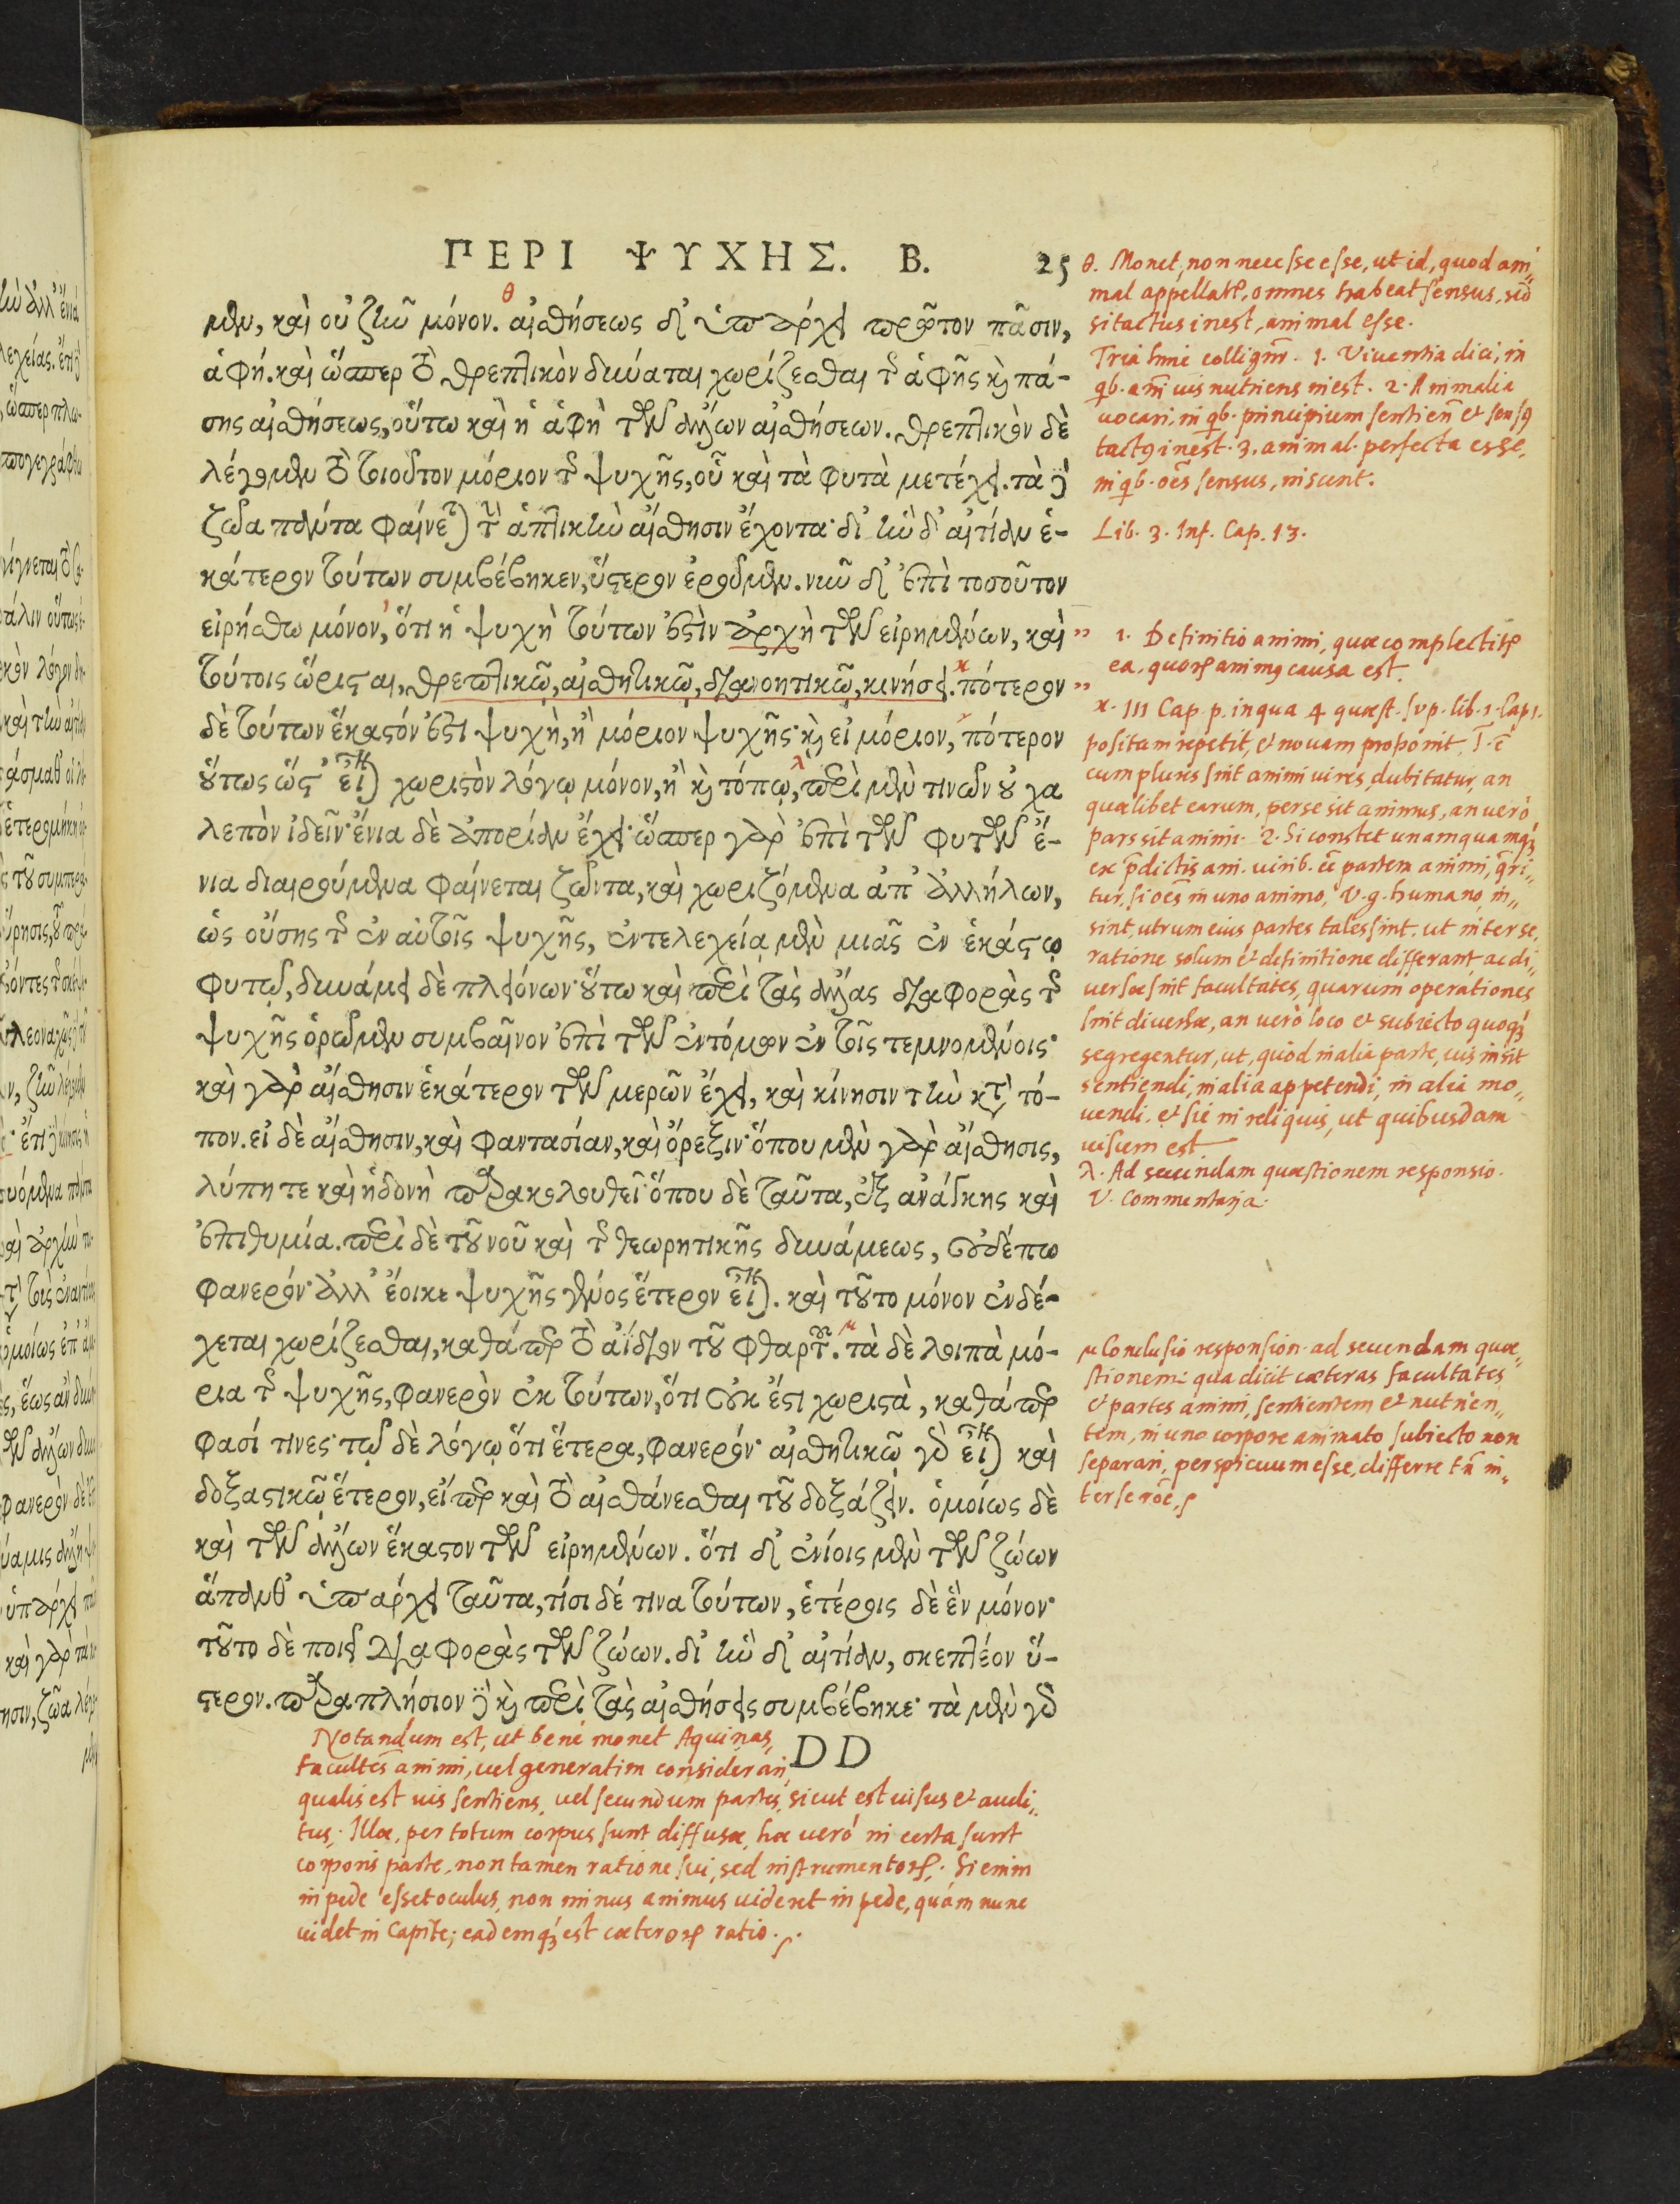 ΠΕΡΙ ΨΥΧΗΣ. Β. 25
μϑμ, καὶ οὐ ζῆν μόνον. αἰσθήσεως δ' ὑπάρχει πρῶτον πᾶσιν,
ἁφή. καὶ ὥσπερ τὸ θρεπτικὸν δύναται χωρίζεσθαι τῆς ἁφῆς καὶ πά-
σης αἰσθήσεως, οὕτω καὶ ἡ ἁφὴ τῶν ἄλλων αἰσθήσεων. θρεπτικὸν δὲ
λέγομεν τὸ τοιοῦτον μόριον τῆς ψυχῆς, οὗ καὶ τὰ φυτὰ μετέχει. τὰ δὲ
ζῶα πάντα φαίνεται τὴν ἁπτικὴν αἴσθησιν ἔχοντα· δι' ἣν δ' αἰτίαν ἑ-
κάτερον τούτων συμβέβηκεν, ὕστερον ἐροῦμεν. νῦν δ' ἐπὶ τοσοῦτον
εἰρήσθω μόνον, ὅτι ἡ ψυχὴ τούτων ἐστὶν ἀρχὴ τῶν εἰρημένων, καὶ
τούτοις ὥρισται, θρεπτικῶ, αἰσθητικῶ, διανοητικῶ, κινήσει. πότερον
δὲ τούτων ἕκαστόν ἐστι ψυχὴ, ἢ μόριον ψυχῆς· καὶ εἰ μόριον, πότερον
οὕτως ὥστ' εἶναι χωριστὸν λόγῳ μόνον, ἢ καὶ τόπῳ, περὶ μὲν τινῶν οὐ χα
λεπὸν ἰδεῖν· ἔνια δὲ ἀπορίαν ἔχει· ὥσπερ γὰρ ἐπὶ τῶν φυτῶν ἔ-
νια διαιρούμενα φαίνεται ζῶντα, καὶ χωριζόμενα ἀπ' ἀλλήλων,
ὡς οὔσης τῆς ἐν αὐτοῖς ψυχῆς, ἐντελεχείᾳ μὲν μιᾶς ἐν ἑκάστῳ
φυτῷ, δυνάμει δὲ πλειόνων· οὕτω καὶ περὶ τὰς ἄλλας διαφορὰς τῆς
ψυχῆς ὁρῶμεν συμβαῖνον ἐπὶ τῶν ἐντόμων ἐν τοῖς τεμνομένοις·
καὶ γὰρ αἴσθησιν ἑκάτερον τῶν μερῶν ἔχει, καὶ κίνησιν τὴν κατὰ τό-
πον. εἰ δὲ αἴσθησιν, καὶ φαντασίαν, καὶ ὄρεξιν· ὅπου μὲν γὰρ αἴσθησις,
λύπη τε καὶ ἡδονὴ παρακολουθεῖ· ὅπου δὲ ταῦτα, ἐξ ἀνάγκης καὶ
ἐπιθυμία. περὶ δὲ τοῦ νοῦ καὶ τῆς θεωρητικῆς δυνάμεως, οὐδέπω
φανερόν· ἀλλ' ἔοικε ψυχῆς γένος ἕτερον εἶναι. καὶ τοῦτο μόνον ἐνδέ-
χεται χωρίζεσθαι, καθάπερ τὸ ἀΐδιον τοῦ φθαρτοῦ. τὰ δὲ λοιπὰ μό-
ρια τῆς ψυχῆς, φανερὸν ἐκ τούτων, ὅτι οὐκ ἔστι χωριστὰ, καθάπερ
φασί τινες· τῷ δὲ λόγῳ ὅτι ἕτερα, φανερόν· αἰσθητικῶ γὰρ εἶναι καὶ
δοξαστικῶ ἕτερον, εἴπερ καὶ τὸ αἰσθάνεσθαι τοῦ δοξάζειν. ὁμοίως δὲ
καὶ τῶν ἄλλων ἕκαστον τῶν εἰρημένων. ὅτι δ' ἐνίοις μὲν τῶν ζώων
ἅπανθ' ὑπάρχει ταῦτα, τισὶ δέ τινα τούτων, ἑτέροις δὲ ἓν μόνον·
τοῦτο δὲ ποιεῖ διαφορὰς τῶν ζώων. δι' ἣν δ' αἰτίαν, σκεπτέον ὕ-
στερον. παραπλήσιον δὲ καὶ περὶ τὰς αἰσθήσεις συμβέβηκε· τὰ μὲν γὰρ
DD
θ. Monet, non necesse esse, ut id, quod ani„
mal appellatꝛ, omnes habeat sensus, sed
si tactus inest, animal esse.
Tria hinc colligunt̃. 1. Viventia dici, in
qb. animi uis nutriens inest. 2. Animalia
uocari, in qb. principium sentien̄ et sensꝰ
tactꝰ inest. 3. animal. perfecta esse,
in qb. oēs sensus, insunt.
Lib. 3. Inf. Cap. 13.
1. Definitio animi, quæ complectitꝛ
ea, quoꝝ animꝰ causa est.
κ. III Cap. p. in qua 4 quæst. sup. lib. 1. Cap 1.
positam repetit, et novam proponit. I. ē
cum plures sint animi uires, dubitatur, an
quælibet earum, per se sit animus, an verò
pars sit animi. 2. Si constet unamquamqꝫ
ex p̄dictis ani. uirib. eē partem animi, q̄ri„
tur, si oēs in uno animo, V.g. humano, in„
sint, utrum eius partes tales sint, ut inter se,
ratione solum et definitione differant ac di„
uersæ sint facultates, quarum operationes
sint diuersæ, an uerò loco et subiecto quoqꝫ
segregentur, ut, quòd in alia parte, uis insit
sentiendi, in alia appetendi, in alia mo„
uendi, et sic in reliquis, ut quibusdam
uisum est
λ. Ad secundam quæstionem responsio.
V. Commentaria.
μ Conclusio responsion. ad secundam quæ„
stionem: qua dicit cæteras facultates
et partes animi, sentientem et nutrien„
tem, in uno corpore animato subiecto non
separari, perspicuum esse, differre tn̄ in„
ter se rōe.
Notandum est, ut benè monet Aquinas,
facultēs animi, uel generatim considerari,
qualis est uis sentiens, uel secundum partes, sicut est uisus et audi„
tus. Illæ, per totum corpus sunt diffusæ, hæ uerò in certa sunt
corporis parte, non tamen ratione sui, sed instrumentoꝝ. Si enim
in pede esset oculus, non minus animus uideret in pede, quàm nunc
uidet in Capite; eademqꝫ est cæteroꝝ ratio.